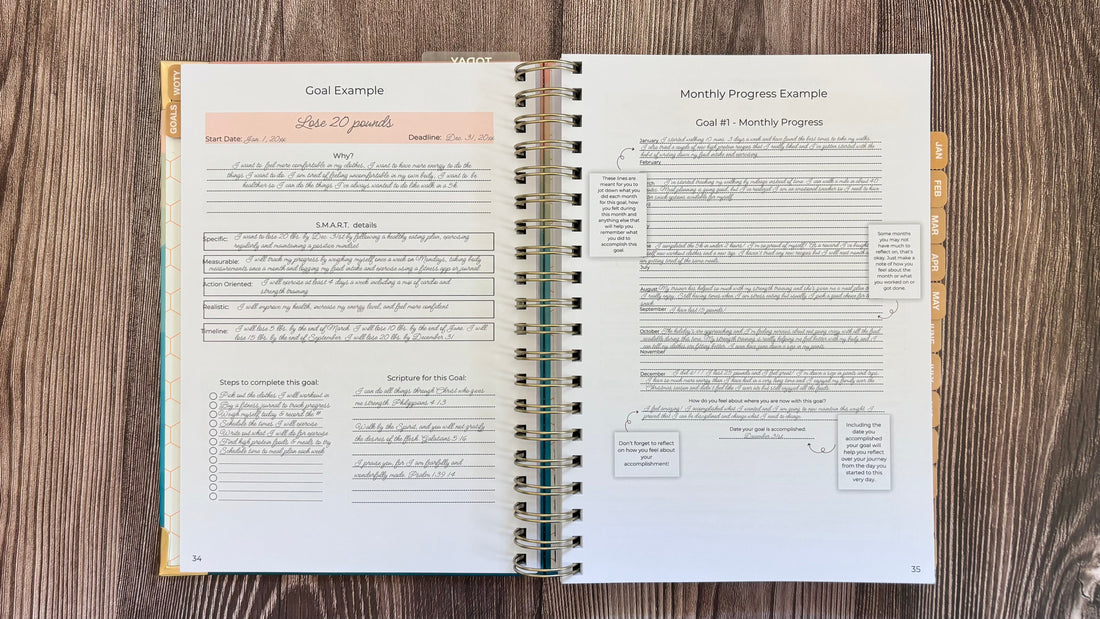 TODAY
WOTY
GOALS
Goal Example
Lose 20 pounds
Start Date: Jan. 1, 20xx
Deadline: Dec. 31, 20xx
Why?
I want to feel more comfortable in my clothes. I want to have more energy to do the
things I want to do. I am tired of feeling uncomfortable in my own body. I want to be
healthier so I can do the things I've always wanted to do like walk in a 5k.
S.M.A.R.T. details
Specific: I want to lose 20 lbs. by Dec. 31st by following a healthy eating plan, exercising
regularly and maintaining a positive mindset
Measurable: I will track my progress by weighing myself once a week on Mondays, taking body
measurements once a month and logging my food intake and exercise using a fitness app or journal
Action Oriented: I will exercise at least 4 days a week including a mix of cardio and
strength training
Realistic: I will improve my health, increase my energy level, and feel more confident.
Timeline: I will lose 5 lbs. by the end of March. I will lose 10 lbs. by the end of June. I will
lose 15 lbs. by the end of September. I will lose 20 lbs. by December 31
Steps to complete this goal:
Pick out the clothes I will workout in
Buy a fitness journal to track progress
Weigh myself today & record the #
Schedule the times I will exercise
Write out what I will do for exercise
Find high protein foods & meals to try
Schedule time to meal plan each week
Scripture for this Goal:
I can do all things through Christ who gives
me strength. Philippians 4:13
Walk by the Spirit, and you will not gratify
the desires of the flesh. Galatians 5:16
I praise you, for I am fearfully and
wonderfully made. Psalm 139:14
34
Monthly Progress Example
Goal #1 - Monthly Progress
January I started walking 10 mins. 3 days a week and have found the best times to take my walks.
I also tried a couple of new high protein recipes that I really liked and I've gotten started with the
habit of writing down my food intake and exercising.
February
These lines are
meant for you to
jot down what you
did each month
for this goal, how
you felt during
this month and
anything else that
will help you
remember what
you did to
accomplish this
goal.
I started tracking my walking by mileage instead of time. I can walk a mile in about 45
Meal planning is going good, but I've realized I am an emotional snacker so I need to have
snack options available for myself.
I completed the 5k in under 2 hours! I'm so proud of myself! As a reward I've bought
new workout clothes and a new top. I haven't tried any new recipes but I will next month
getting tired of the same meals.
July
Some months
you may not
have much to
reflect on, that's
okay. Just make a
note of how you
feel about the
month or what
you worked on or
got done.
August My trainer has helped so much with my strength training and she's given me a meal plan
I really enjoy. I still having times when I am stress eating but usually I pick a good choice for
snack.
September I have lost 15 pounds!
October The holiday's are approaching and I'm feeling nervous about not going crazy with all the food
available during this time. My strength training is really helping me feel better with my body and I
can tell my clothes are fitting better. I even have gone down a size in my pants.
November
December I did it!!! I lost 25 pounds and I feel great! I'm down a size in pants and tops.
I have so much more energy than I have had in a very long time and I enjoyed my family over the
Christmas season and didn't feel like I over ate but still enjoyed all the foods.
How do you feel about where you are now with this goal?
I feel amazing! I accomplished what I wanted and I am going to now maintain this weight. I
proved that I can be disciplined and change what I want to change.
Date your goal is accomplished:
December 31st
Don't forget to reflect
on how you feel about
your
accomplishment!
Including the
date you
accomplished
your goal will
help you reflect
over your journey
from the day you
started to this
very day.
35
JAN
FEB
MAR
APR
MAY
JUNE